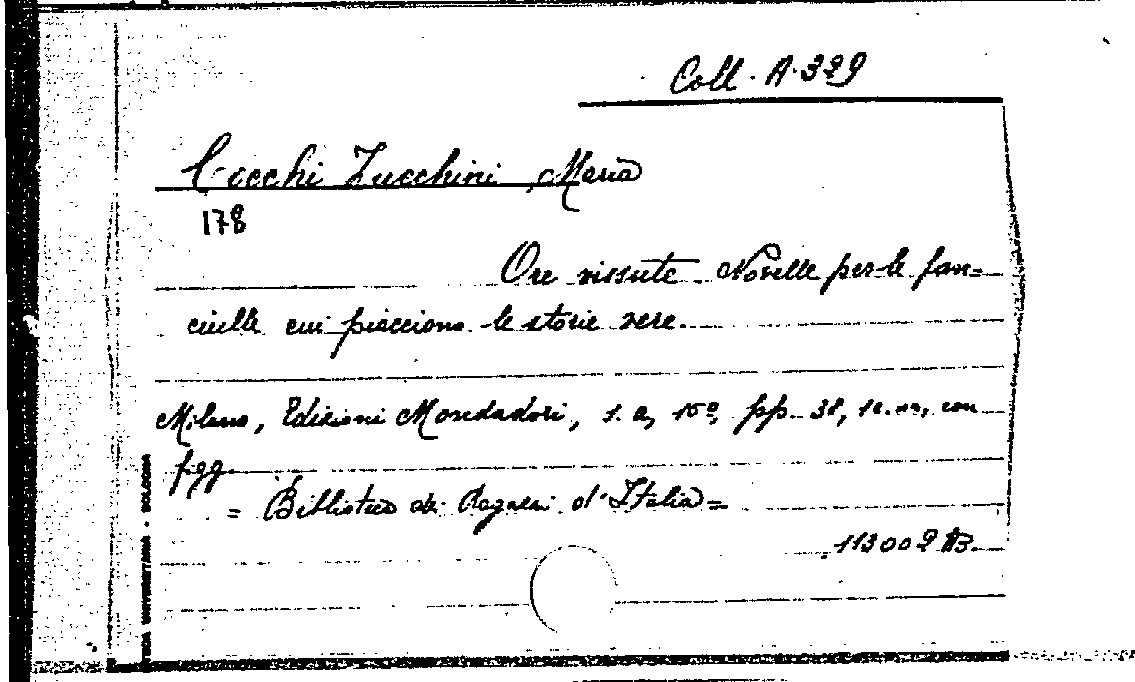 Coll. A. 329
Cecchi Zucchini Maria
178
Ore vissute. Novelle per le fan-
ciulle cui piacciono le storie vere.
Milano, Edizioni Mondadori, s. a, 15º, pp. 38, con
figg.
= Biblioteca dei Ragazzi d'Italia =
113002 B
TECA UNIVERSITARIA - BOLOGNA